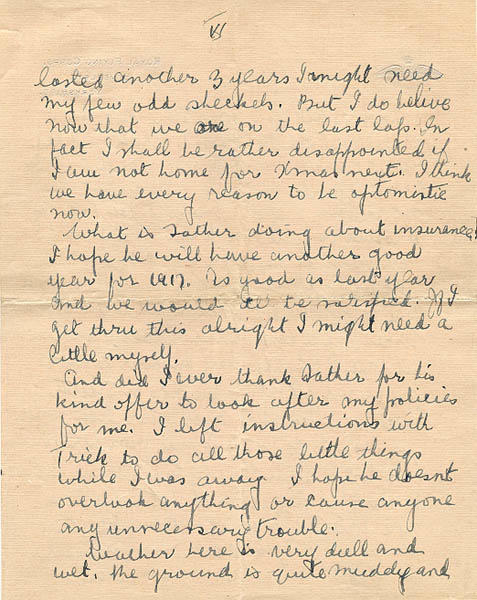 VI
lasted another 3 years I might need
my few odd sheckels. But I do belive
now that we are on the last lap. In
fact I shall be rather disappointed if
I am not home for Xmas next. I think
we have every reason to be optomistic
now.
What is Father doing about insurance?
I hope he will have another good
year for 1917. As good as last year
and we would all be satisfied. If I
get thru this alright I might need a
little myself.
And did I ever thank Father for his
kind offer to look after my policies
for me. I left instructions with
Trick to do all those little things
while I was away. I hope he doesn't
overlook anything or cause anyone
any unnecessary trouble.
Weather here is very dull and
wet. The ground is quite muddy and